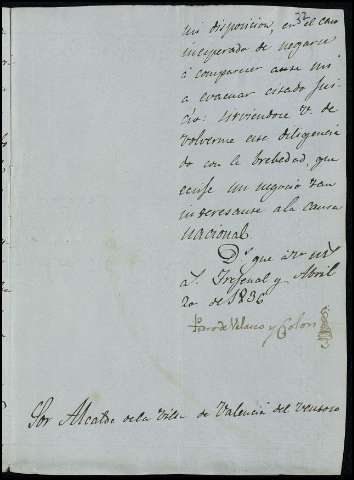 32
mi disposicion, en el caso
inesperado de negarse
á comparecer ante mi
a evacuar citado Jui-
cio: sirviendose V. de
volverme este diligencia
do con la brebedad, que
ecsije un negocio tan
interesante a la causa
Nacional
D.s que á V. m.s
a.s Frejenal y Abril
20 de 1836
de Velasco y Colon
Sor Alcalde de la Villa de Valencia del Ventoso